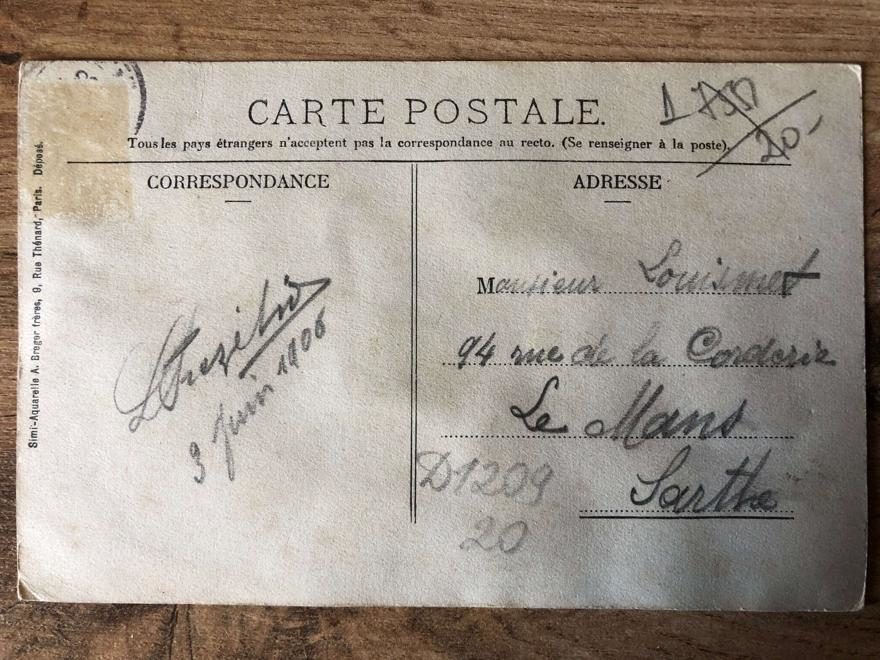 CARTE POSTALE.
Tous les pays étrangers n'acceptent pas la correspondance au recto. (Se renseigner à la poste).
20-
CORRESPONDANCE
ADRESSE
Simi-Aquarelle A. Breger frères, 9, Rue Thénard, Paris. Déposé.
3 Juin 1906
Monsieur Louismet
94 rue de la Corderie
Le Mans
Sarthe
D1209
20